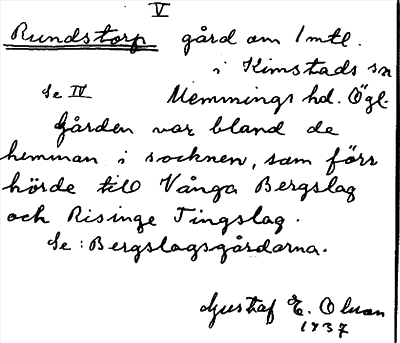 V
Rundstorp gård om 1 mtl.
i Kimstads sn
Se IV Memmings hd. Ögl.
Gården var bland de
hemman i socknen, som förr
hörde till Vånga Bergslag
och Risinge Tingslag.
Se: Bergslagsgårdarna.
Gustaf E. Olsson
1937